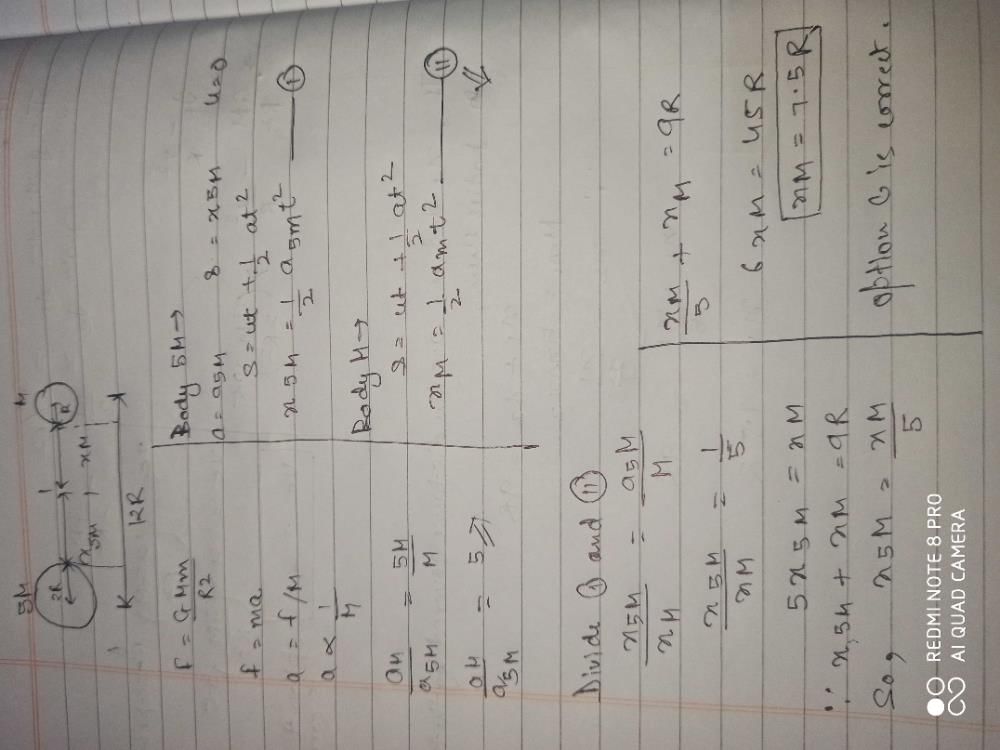 5M M
2R R
x5M xM
12R
F = GMm/R2
F = ma
a = F/M
a ∝ 1/M
aM/a5M = 5M/M
aM/a5M = 5
Body 5M →
a = a5M s = x5M u=0
S = ut + 1/2 at2
x5M = 1/2 a5Mt2 — I
Body M →
S = ut + 1/2 at2
xM = 1/2 aMt2 — II
Divide I and II
x5M/xM = a5M/M
x5M/xM = 1/5
5x5M = xM
∴ x5M + xM = 9R
So, x5M = xM/5
xM/5 + xM = 9R
6xM = 45R
xM = 7.5R
option C is correct.
REDMI NOTE 8 PRO
AI QUAD CAMERA